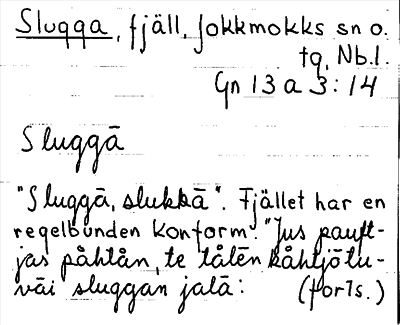 Slugga, fjäll, Jokkmokks sn o.
tg, Nb.l.
Gn 13 a 3:14
Sluggā
"Sluggā, slukkā". Fjället har en
regelbunden konform. "Jus pauft-
jas påhtån, te tålēn kåhtjōtu-
vāi sluggan jalā: (forts.)